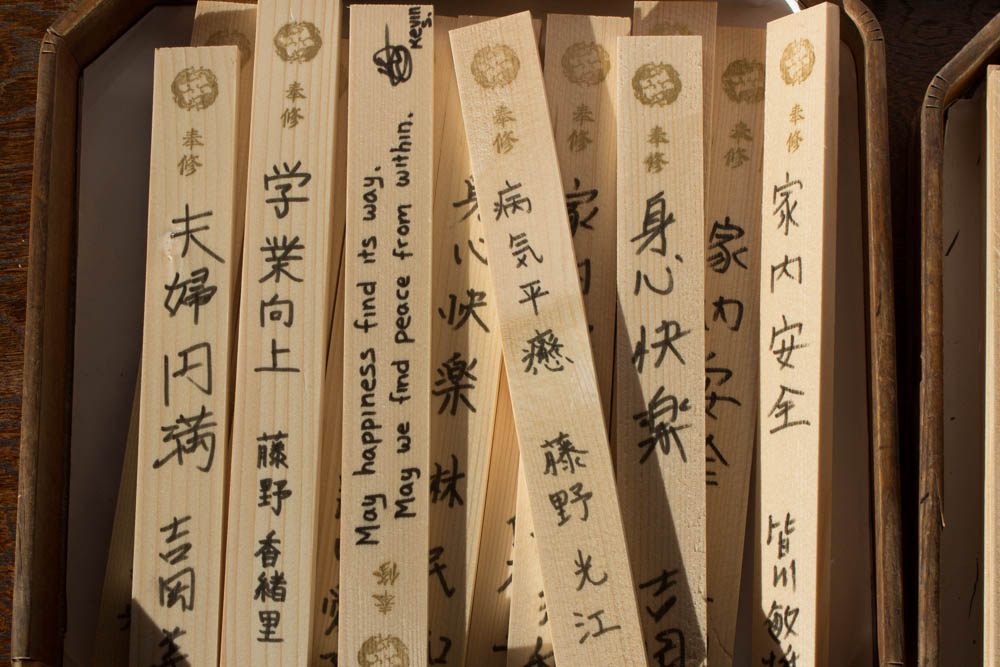 奉修
夫婦円満 吉岡
奉修
学業向上 藤野香緒里
Kevin S.
May happiness find its way.
May we find peace from within.
奉修
身心快楽 林 民
奉修
病気平癒 藤野光江
奉修
家内
奉修
身心快楽 吉岡
奉修
家内安全
奉修
家内安全 皆川敏